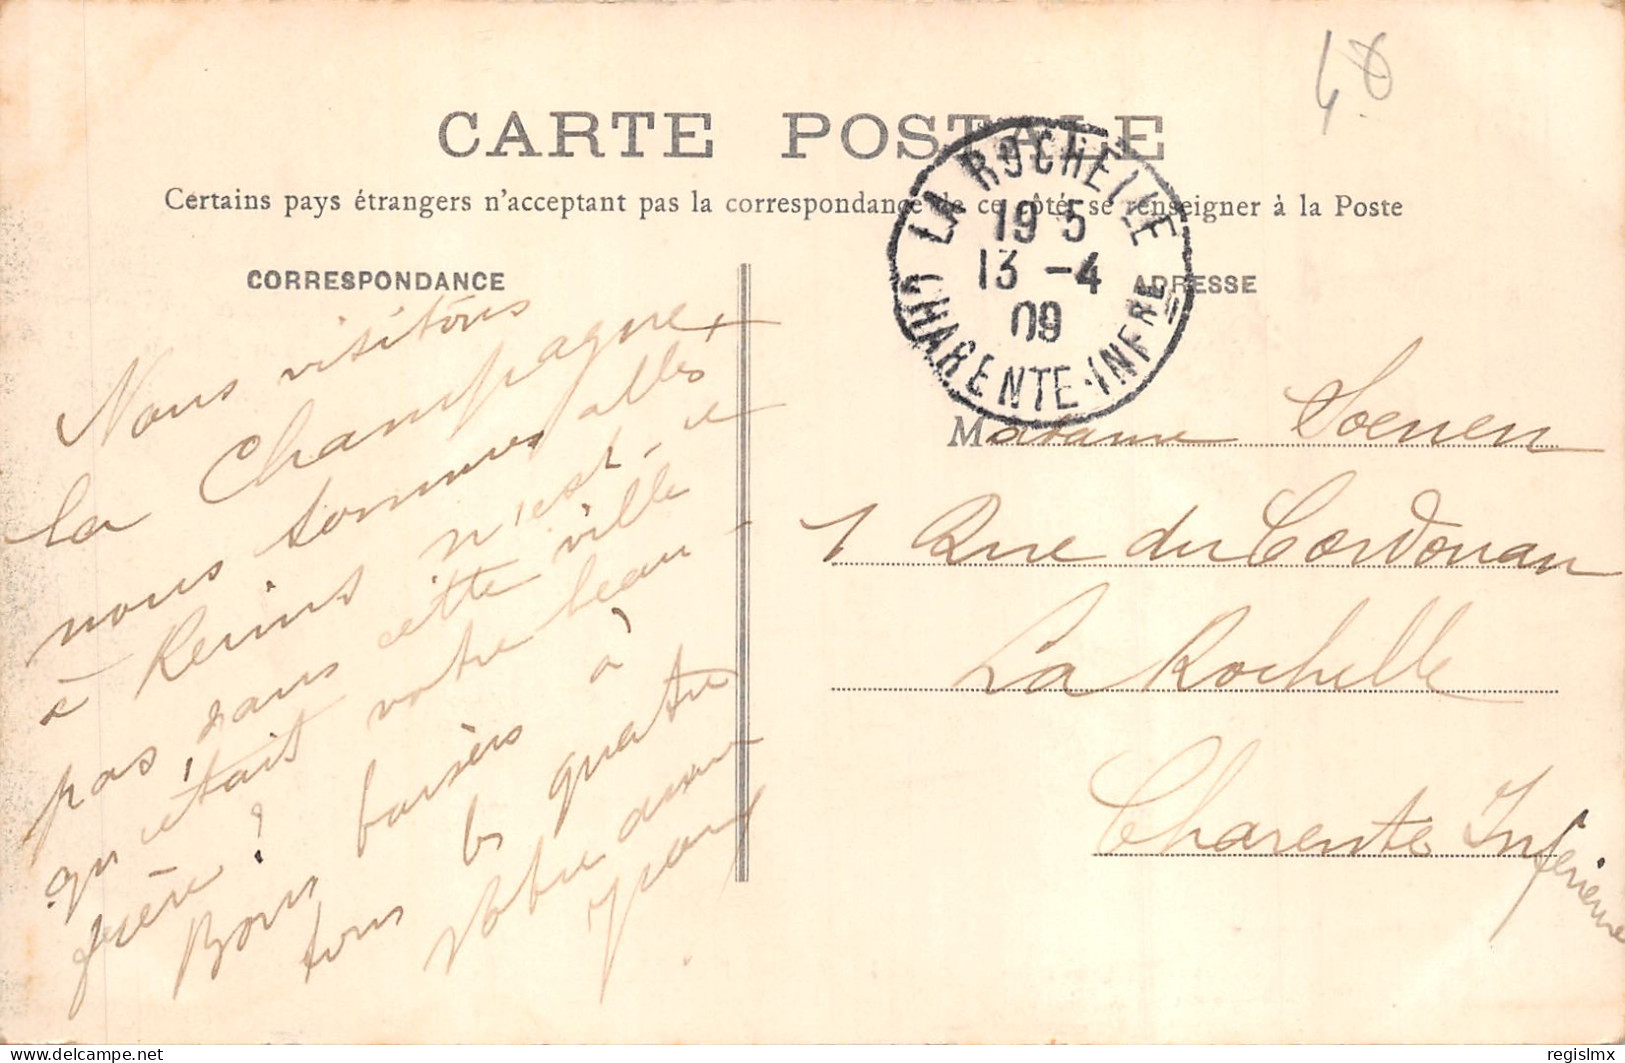 48
CARTE POSTALE
Certains pays étrangers n'acceptent pas la correspondance de ce côté, se renseigner à la Poste
LA ROCHELLE
19 5
13 -4
09
CHARENTE-INFRE
CORRESPONDANCE
Nous visitons
la Champagne
nous sommes allés
à Reims n'est-ce
pas dans cette ville
qu'était votre beau-
frère ?
Bons baisers à
tous les quatre
Votre
ADRESSE
Madame Soenen
1 Rue du Cordouan
La Rochelle
Charente Inférieure
delcampe.net
regislmx